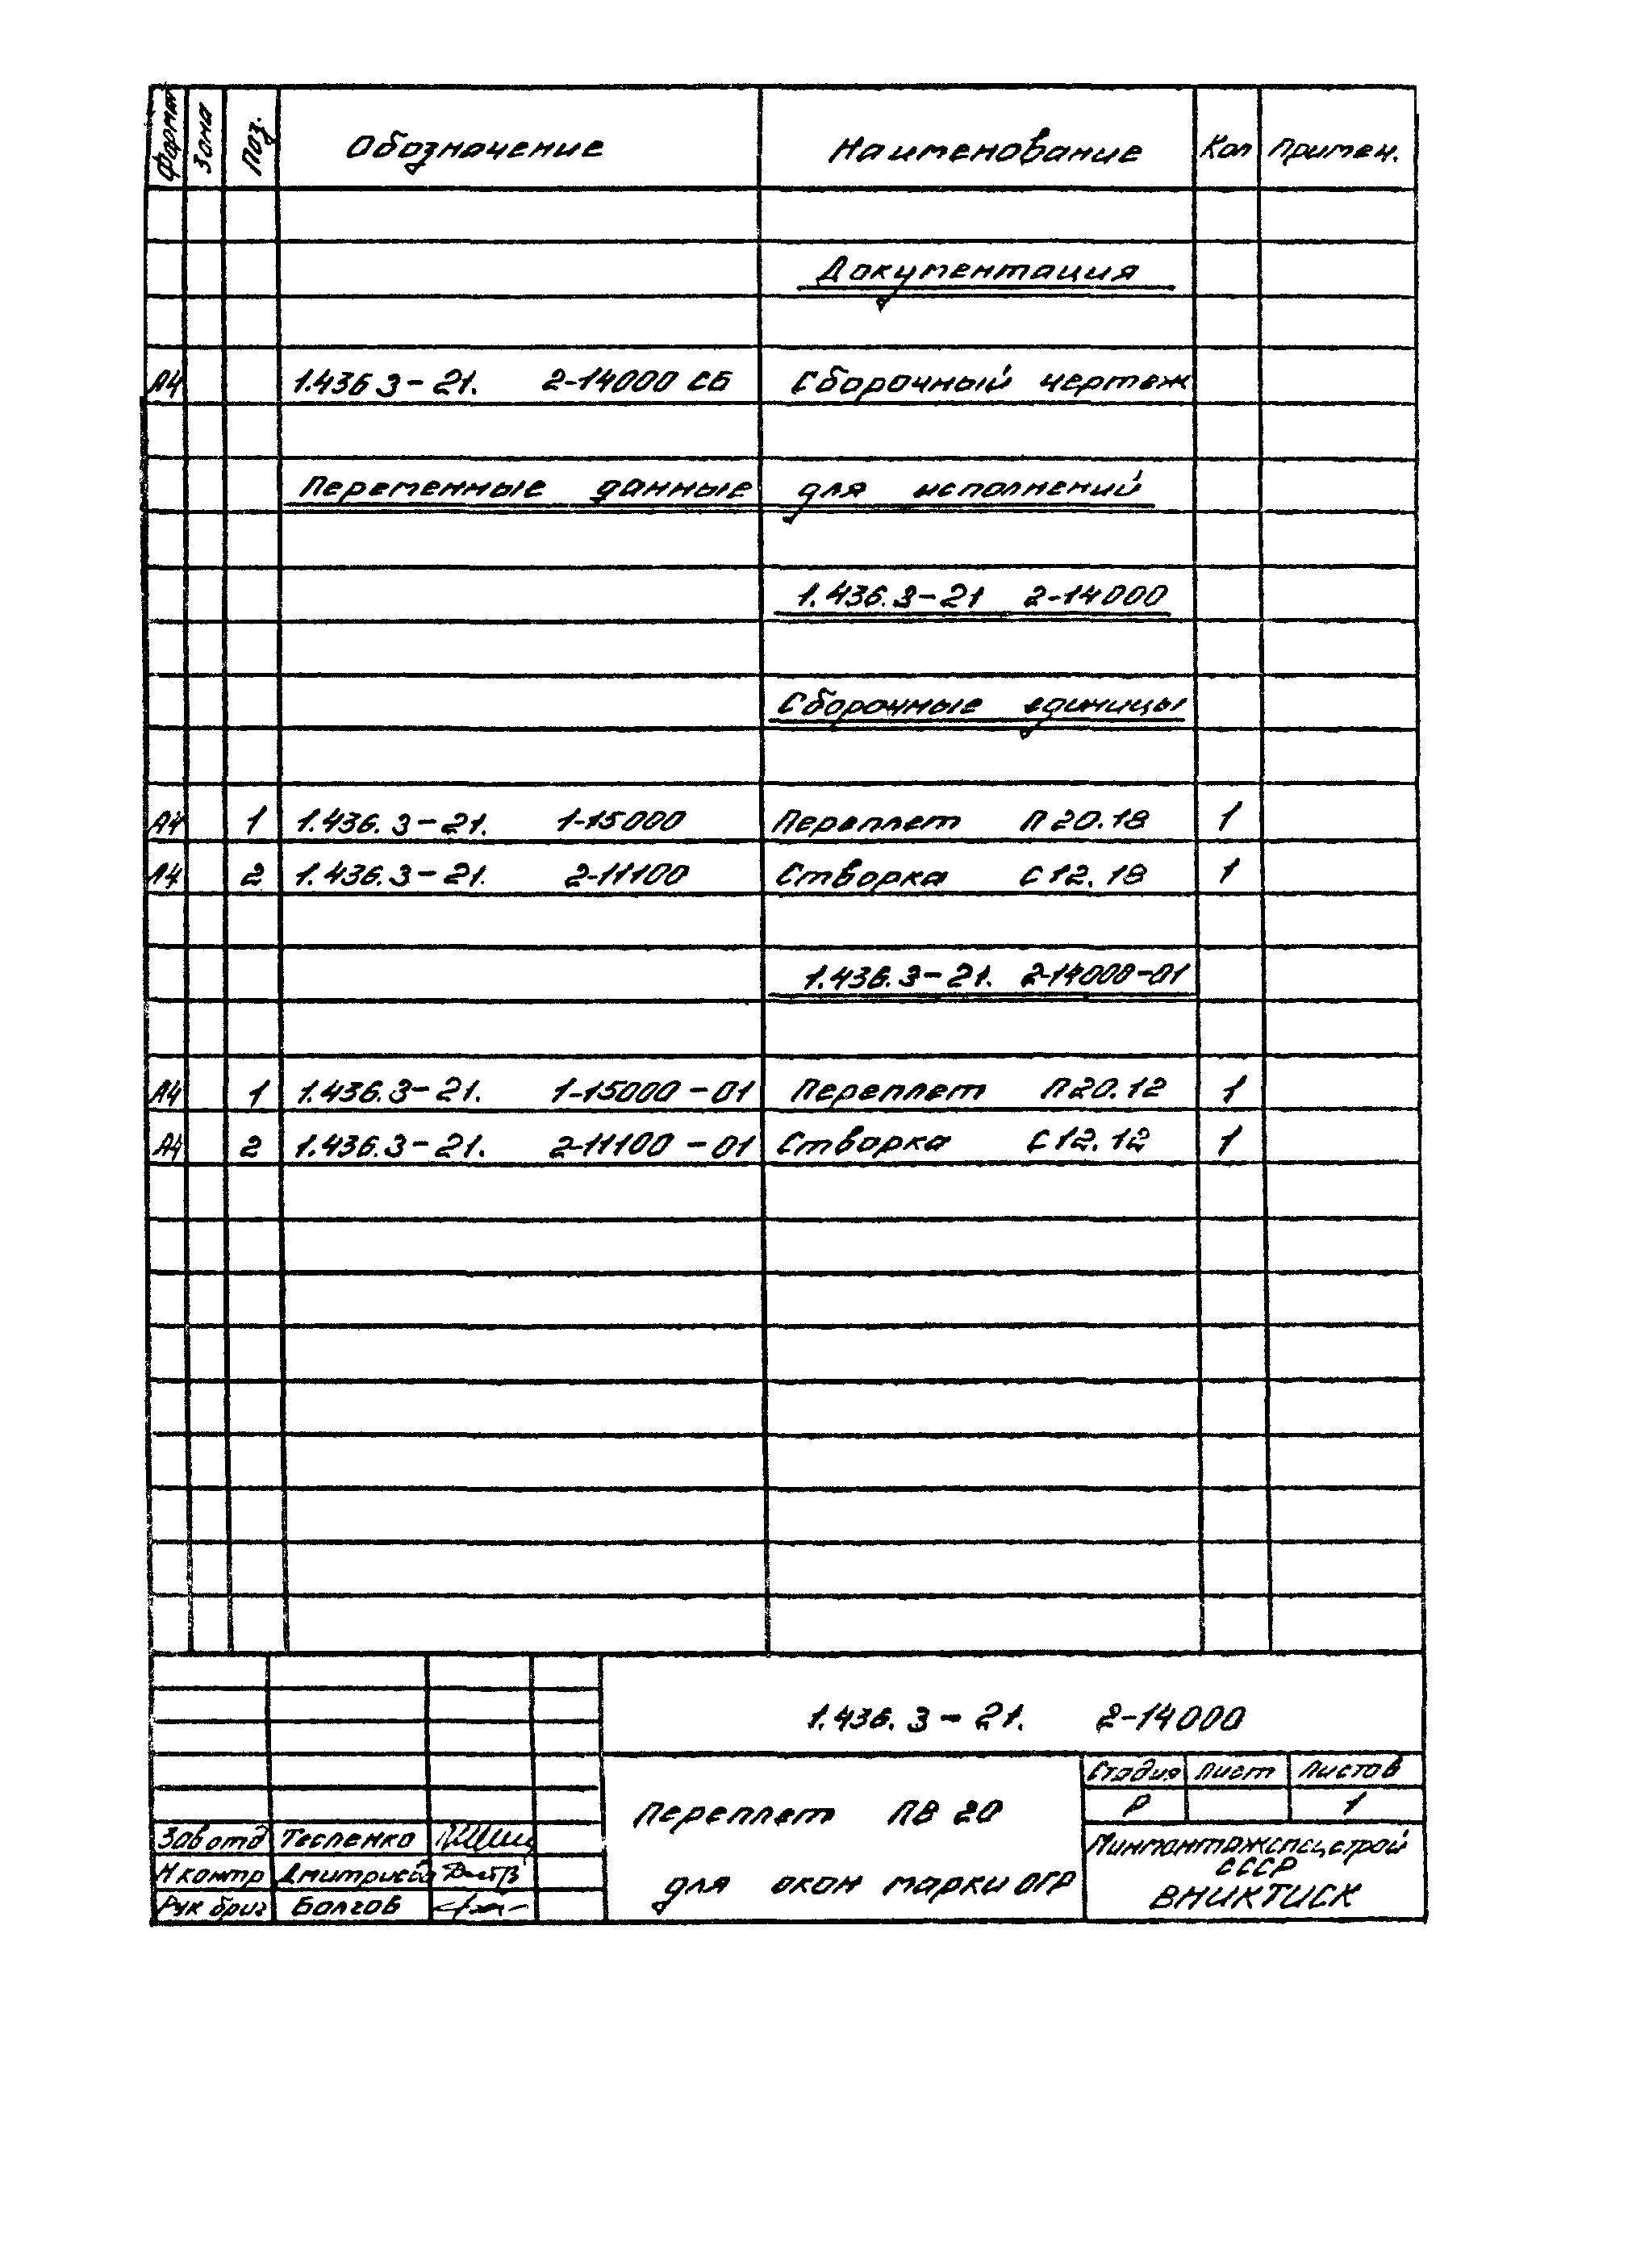 Формат Зона Поз. Обозначение Наименование Кол Примеч.
Документация
А4 1.436 3-21. 2-14000 СБ Сборочный чертеж
Переменные данные для исполнений
1.436.3-21 2-14000
Сборочные единицы
А4 1 1.436.3-21. 1-15000 Переплет П 20.18 1
А4 2 1.436.3-21. 2-11100 Створка С 12.18 1
1.436.3-21. 2-14000-01
А4 1 1.436.3-21. 1-15000-01 Переплет П 20.12 1
А4 2 1.436.3-21. 2-11100-01 Створка С 12.12 1
1.436.3-21. 2-14000
Переплет ПВ 20
для окон марки ОГР
Стадия Лист Листов
Р 1
Зав отд Тесленко
Н контр Дмитриева
Рук бриг Болгов
Минмонтажспецстрой
СССР
ВНИКТИСК